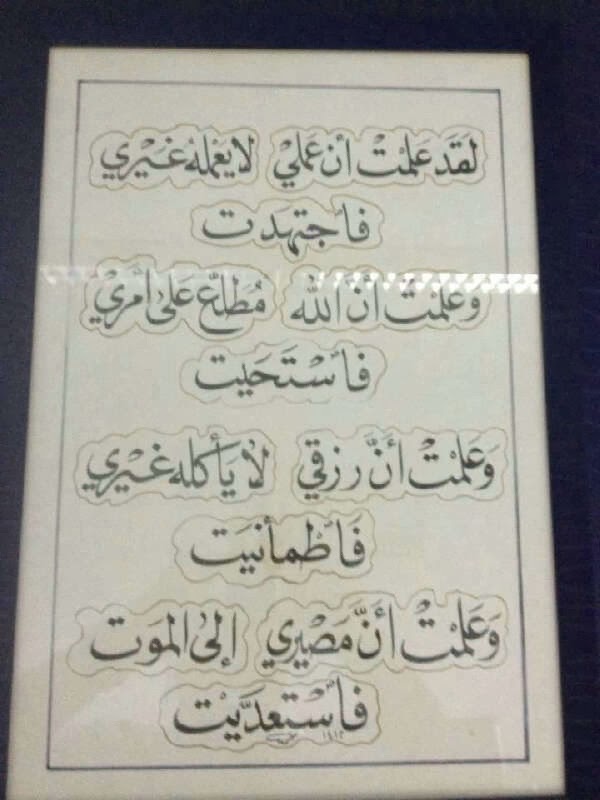 لقد علمت أن عملي لا يعمله غيري
فاجتهدت
وعلمت أن الله مطلع على أمري
فاستحيت
وعلمت أن رزقي لا يأكله غيري
فاطمأنيت
وعلمت أن مصيري إلى الموت
فاستعديت